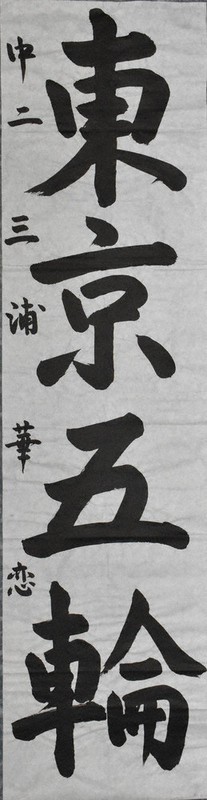 東京五輪
中二 三浦 華恋